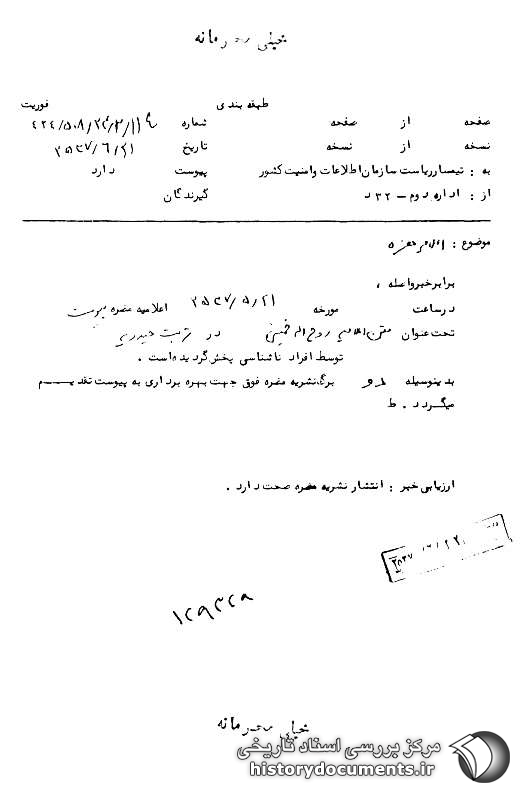 خیلی محرمانه
طبقه بندی فوریت
صفحه از صفحه شماره
نسخه از نسخه تاریخ ۲۵۳۷/۶/۲۱
به : تیمسار ریاست سازمان اطلاعات و امنیت کشور پیوست دارد
از : اداره دوم – ۳۲ د گیرندگان
موضوع : اعلامیه مضره
برابر خبر واصله ،
در ساعت مورخه ۲۵۳۷/۵/۲۱ اعلامیه مضره پیوست
تحت عنوان متن اعلامیه روح اله خمینی در تربت حیدریه
توسط افراد ناشناسی پخش گردیده است .
بدینوسیله دو برگ نشریه مضره فوق جهت بهره برداری به پیوست تقدیم
میگردد . ط
ارزیابی خبر : انتشار نشریه مضره صحت دارد .
خیلی محرمانه
مرکز بررسی اسناد تاریخی
historydocuments.ir